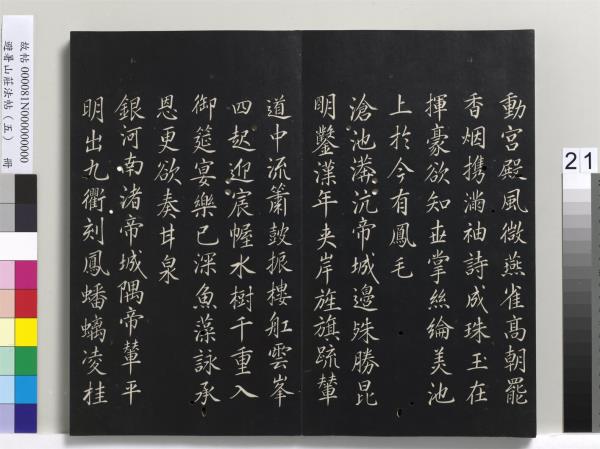 動宮殿風微燕雀高朝罷
香烟攜滿袖詩成珠玉在
揮豪欲知世掌絲綸美池
上於今有鳳毛
滄池漭沆帝城邊殊勝昆
明鑿漢年夹岸旌旗踈輦
道中流簫鼓振樓舡雲峯
四起迎宸幄水樹千重入
御筵宴樂已深魚藻詠承
恩更欲奏甘泉
銀河南渚帝城隅帝輦平
明出九衢刻鳳蟠螭凌桂
故帖000081N000000000
避暑山莊法帖（五） 冊
21